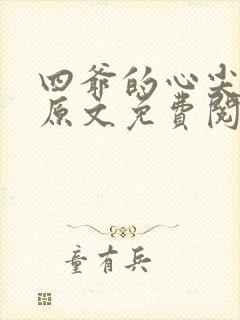 四爷的心尖
原文免费阅
童有兵